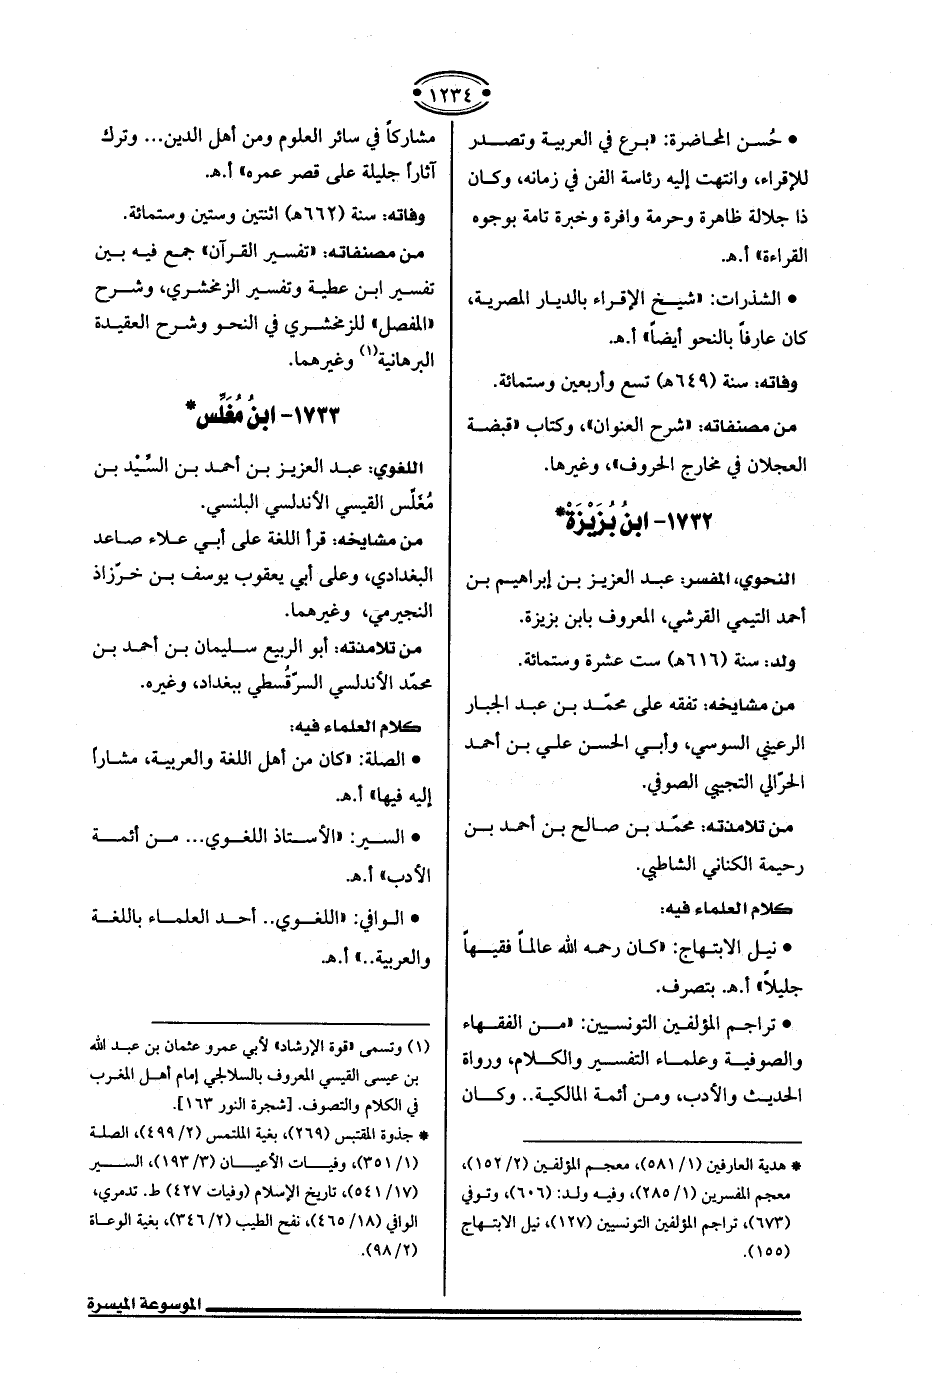 ١٢٣٤
• حُسن المحاضرة: «برع في العربية وتصدر
للإقراء، وانتهت إليه رئاسة الفن في زمانه، وكان
ذا جلالة ظاهرة وحرمة وافرة وخبرة تامة بوجوه
القراءة» أ.هـ.
• الشذرات: «شيخ الإقراء بالديار المصرية،
كان عارفاً بالنحو أيضاً» أ.هـ.
وفاته: سنة (٦٤٩هـ) تسع وأربعين وستمائة.
من مصنفاته: «شرح العنوان»، وكتاب «قبضة
العجلان في مخارج الحروف»، وغيرها.
١٧٣٢- ابنُ بُزَيْزَة*
النحوي، المفسر: عبد العزيز بن إبراهيم بن
أحمد التيمي القرشي، المعروف بابن بزيزة.
ولد: سنة (٦١٦هـ) ست عشرة وستمائة.
من مشايخه: تفقه على محمّد بن عبد الجبار
الرعيني السوسي، وأبي الحسن علي بن أحمد
الحرّالي التجيبي الصوفي.
من تلامذته: محمّد بن صالح بن أحمد بن
رحيمة الكناني الشاطبي.
كلام العلماء فيه:
• نيل الابتهاج: «كان رحمه الله عالماً فقيهاً
جليلاً» أ.هـ. بتصرف.
• تراجم المؤلفين التونسيين: «من الفقهاء
والصوفية وعلماء التفسير والكلام، ورواة
الحديث والأدب، ومن أئمة المالكية.. وكان
* هدية العارفين (١/ ٥٨١)، معجم المؤلفين (٢/ ١٥٢)،
معجم المفسرين (١/ ٢٨٥)، وفيه ولد: (٦٠٦)، وتوفي
(٦٧٣)، تراجم المؤلفين التونسيين (١٢٧)، نيل الابتهاج
(١٥٥).
مشاركاً في سائر العلوم ومن أهل الدين... وترك
آثاراً جليلة على قصر عمره» أ.هـ.
وفاته: سنة (٦٦٢هـ) اثنتين وستين وستمائة.
من مصنفاته: «تفسير القرآن» جمع فيه بين
تفسير ابن عطية وتفسير الزمخشري، وشرح
«المفصل» للزمخشري في النحو وشرح العقيدة
البرهانية(١) وغيرهما.
١٧٣٣- ابنُ مُغَلِّس*
اللغوي: عبد العزيز بن أحمد بن السِّيْد بن
مُغَلّس القيسي الأندلسي البلنسي.
من مشايخه: قرأ اللغة على أبي علاء صاعد
البغدادي، وعلى أبي يعقوب يوسف بن خرّزاذ
النجيرمي، وغيرهما.
من تلامذته: أبو الربيع سليمان بن أحمد بن
محمّد الأندلسي السرّقُسطي ببغداد، وغيره.
كلام العلماء فيه:
• الصلة: «كان من أهل اللغة والعربية، مشاراً
إليه فيها» أ.هـ.
• السير: «الأستاذ اللغوي... من أئمة
الأدب» أ.هـ.
• الوافي: «اللغوي.. أحد العلماء باللغة
والعربية..» أ.هـ.
(١) وتسمى «قوة الإرشاد» لأبي عمرو عثمان بن عبد الله
بن عيسى القيسي المعروف بالسلالجي إمام أهل المغرب
في الكلام والتصوف. [شجرة النور ١٦٣].
* جذوة المقتبس (٢٦٩)، بغية الملتمس (٢/ ٤٩٩)، الصلة
(١/ ٣٥١)، وفيات الأعيان (٣/ ١٩٣)، السير
(١٧/ ٥٤١)، تاريخ الإسلام (وفيات ٤٢٧) ط. تدمري،
الوافي (١٨/ ٤٦٥)، نفح الطيب (٢/ ٣٤٦)، بغية الوعاة
(٢/ ٩٨).
الموسوعة الميسرة